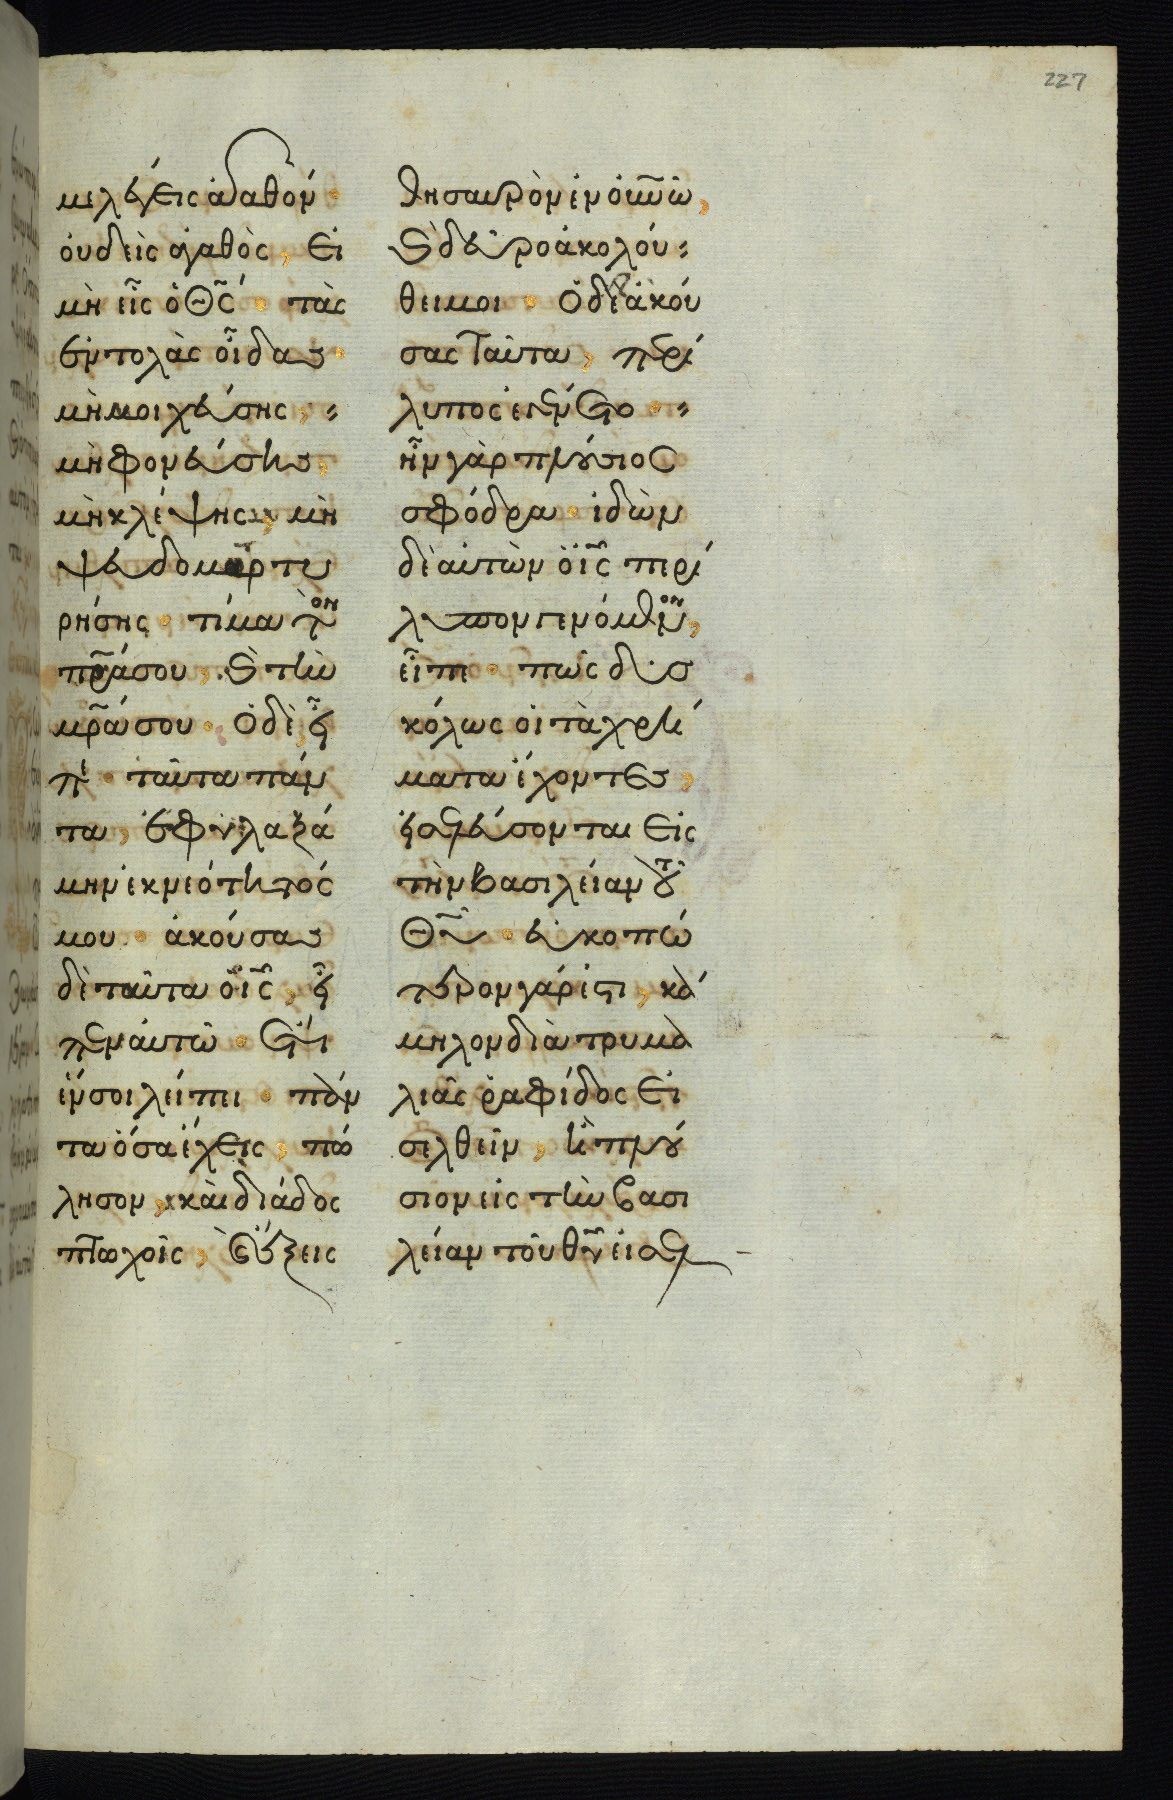 227
με λέγεις ἀγαθόν·
οὐδεὶς ἀγαθὸς, εἰ
μὴ εἷς ὁ Θς̅· τὰς
ἐντολὰς οἶδας·
μὴ μοιχεύσης,
μὴ φονεύσης,
μὴ κλέψης, μὴ
ψευδομαρτυ
ρήσης· τίμα τὸν
πρ̅α σου, καὶ τὴν
μρ̅α σου· ὁ δὲ εἶ
πε· ταῦτα πάν
τα, ἐφυλαξά
μην ἐκ νεότητός
μου· ἀκούσας
δὲ ταῦτα ὁ ις̅, εἶ
πεν αὐτῶ· ἔτι
ἕν σοι λείπει· πάν
τα ὅσα ἔχεις, πώ
λησον, καὶ διάδος
πτωχοῖς, καὶ ἕξεις
θησαυρὸν ἐν οὐνῶ,
καὶ δεῦρο ἀκολού
θει μοι· ὁ δὲ ἀκού
σας ταῦτα, περί
λυπος ἐγένετο·
ἦν γὰρ πλούσιος
σφόδρα· ἰδὼν
δὲ αὐτὸν ὁ ις̅ περί
λυπον γενόμενον,
εἶπε· πῶς δυσ
κόλως οἱ τὰ χρή
ματα ἔχοντες,
εἰσελεύσονται εἰς
τὴν βασιλείαν τοῦ
Θυ̅· εὐκοπώ
τερον γάρ ἐστι, κά
μηλον διὰ τρυμα
λιᾶς ῥαφίδος εἰ
σελθεῖν, ἢ πλού
σιον εἰς τὴν βασι
λείαν τοῦ θυ̅ εἰσελ